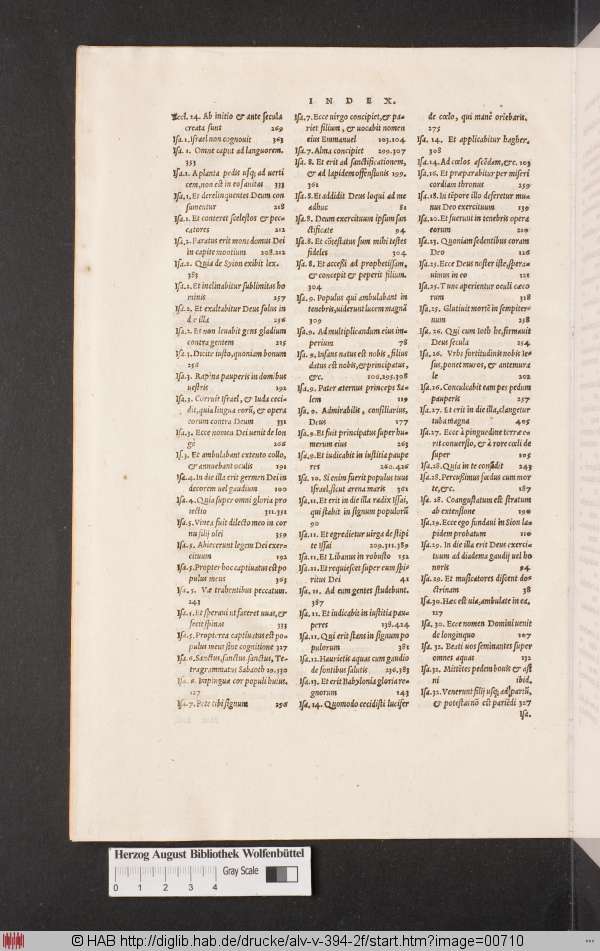 INDEX.
Eccl. 24. Ab initio & ante secula
creata sunt 269
Isa. 1. Israel non cognouit 363
Isa. 1. Omne caput ad languorem.
353
Isa. 1. A planta pedis usq; ad uerti
cem, non est in eo sanitas 333
Isa. 1. Et derelinquentes Deum con
sumentur 218
Isa. 1. Et conteret scelestos & pec=
catores 212
Isa. 2. Paratus erit mons domus Dei
in capite montium 208.212
Isa. 2. Quia de Syion exibit lex.
383
Isa. 2. Et inclinabitur sublimitas ho
minis 257
Isa. 2. Et exaltabitur Deus solus in
die illa 256
Isa. 2. Et non leuabit gens gladium
contra gentem 215
Isa. 3. Dicite iusto, quoniam bonum
256
Isa. 3. Rapina pauperis in domibus
uestris 192
Isa. 3. Corruit Israel, & Iuda ceci=
dit, quia lingua eorū, & opera
eorum contra Deum 331
Isa. 3. Ecce nomen Dei uenit de lon
gè 206
Is. 3. Et ambulabant extento collo,
& annuebant oculis 191
Isa. 4. In die illa erit germen Dei in
decorem uel gaudium 100
Isa. 4. Quia super omni gloria pro
tectio 311.331
Isa. 5. Vinea fuit dilecto meo in cor
nu filij olei 359
Isa. 5. Abiecerunt legem Dei exer=
cituum 192
Isa. 5. Propter hoc captiuatus est po
pulus meus 363
Isa. 5. Væ trahentibus peccatum.
243
Isa. 5. Et speraui ut faceret uuas, &
fecit spinas 333
Isa. 5. Propterea captiuatus est po=
pulus meus sine cognitione 327
Isa. 6. Sanctus, sanctus, sanctus, Te=
tragrammatus Sabaoth 29.330
Isa. 6. Impingua cor populi huius.
127
Isa. 7. Pete tibi signum 256
Isa. 7. Ecce uirgo concipiet, & pa=
riet filium, & uocabit nomen
eius Emmanuel 103.104
Isa. 7. Alma concipiet 299.307
Isa. 8. Et erit ad sanctificationem,
& ad lapidem offensionis 199.
361
Isa. 8. Et addidit Deus loqui ad me
adhuc 81
Isa. 8. Deum exercituum ipsum san
ctificate 94
Isa. 8. Et cōtestatus sum mihi testes
fideles 304
Isa. 8. Et accessi ad prophetissam,
& concepit & peperit filium.
304
Isa. 9. Populus qui ambulabant in
tenebris, uiderunt lucem magnā
309
Isa. 9. Ad multiplicandum eius im=
perium 78
Isa. 9. Infans natus est nobis, filius
datus est nobis, & principatus,
&c. 100.295.308
Isa. 9. Pater æternus princeps Sa=
lem 119
Isa. 9. Admirabilis, consiliarius,
Deus 177
Isa. 9. Et fuit principatus super hu=
merum eius 263
Isa. 9. Et iudicabit in iustitia paupe
res 260.426
Isa. 10. Si enim fuerit populus tuus
Israel, sicut arena maris 361
Isa. 11. Et erit in die illa radix Issai,
qui stabit in signum populorū
90
Isa. 11. Et egredietur uirga de stipi
te Issai 209.311.389
Isa. 11. Et Libanus in robusto 152
Isa. 11. Et requiescet super eum spi=
ritus Dei 41
Isa. 11. Ad eum gentes studebunt.
387
Isa. 11. Et iudicabit in iustitia pau=
peres 138.424
Isa. 11. Qui erit stans in signum po
pulorum 381
Isa. 12. Haurietis aquas cum gaudio
de fontibus salutis 236.383
Isa. 13. Et erit Babylonia gloria re=
gnorum 143
Isa. 14. Quomodo cecidisti lucifer
de cœlo, qui manè oriebaris.
275
Isa. 14. Et applicabitur hagher.
308
Isa. 14. Ad cœlos ascēdam, &c. 103
Isa. 16. Et præparabitur per miseri
cordiam thronus 259
Isa. 18. In tēpore illo defertur mu=
nus Deo exercituum 139
Isa. 20. Et fuerunt in tenebris opera
eorum 210
Isa. 23. Quoniam sedentibus coram
Deo 126
Isa. 25. Ecce Deus noster iste, spera=
uimus in eo 321
Isa. 25. Tunc aperientur oculi cæco
rum 318
Isa. 25. Glutiuit mortē in sempiter=
num 258
Isa. 26. Qui cum Ioth he, firmauit
Deus secula 254
Isa. 26. Vrbs fortitudinis nobis Ie=
sus, ponet muros, & antemura
le 202
Isa. 26. Conculcabit eam pes pedum
pauperis 257
Isa. 27. Et erit in die illa, clangetur
tuba magna 405
Isa. 27. Ecce à pinguedine terræ e=
rit conuersio, & à rore cœli de
super 105
Isa. 28. Quia in te confidit 243
Isa. 28. Percussimus fœdus cum mor
te, &c. 187
Isa. 28. Coangustatum est stratum
ab extensione 190
Isa. 29. Ecce ego fundaui in Sion la=
pidem probatum 110
Isa. 29. In die illa erit Deus exerci=
tuum ad diadema gaudij uel ho
noris 94
Isa. 29. Et musicatores discent do=
ctrinam 38
Isa. 30. Hæc est uia, ambulate in ea.
127
Isa. 30. Ecce nomen Domini uenit
de longinquo 107
Isa. 32. Beati uos seminantes super
omnes aquas 132
Isa. 32. Mittētes pedem bouis & asi
ni ibid.
Isa. 32. Venerunt filij usq; ad partū,
& potestas nō est pariēdi 327
Isa.
Herzog August Bibliothek Wolfenbüttel
0 1 2 3 4 Gray Scale
© HAB http://diglib.hab.de/drucke/alv-v-394-2f/start.htm?image=00710